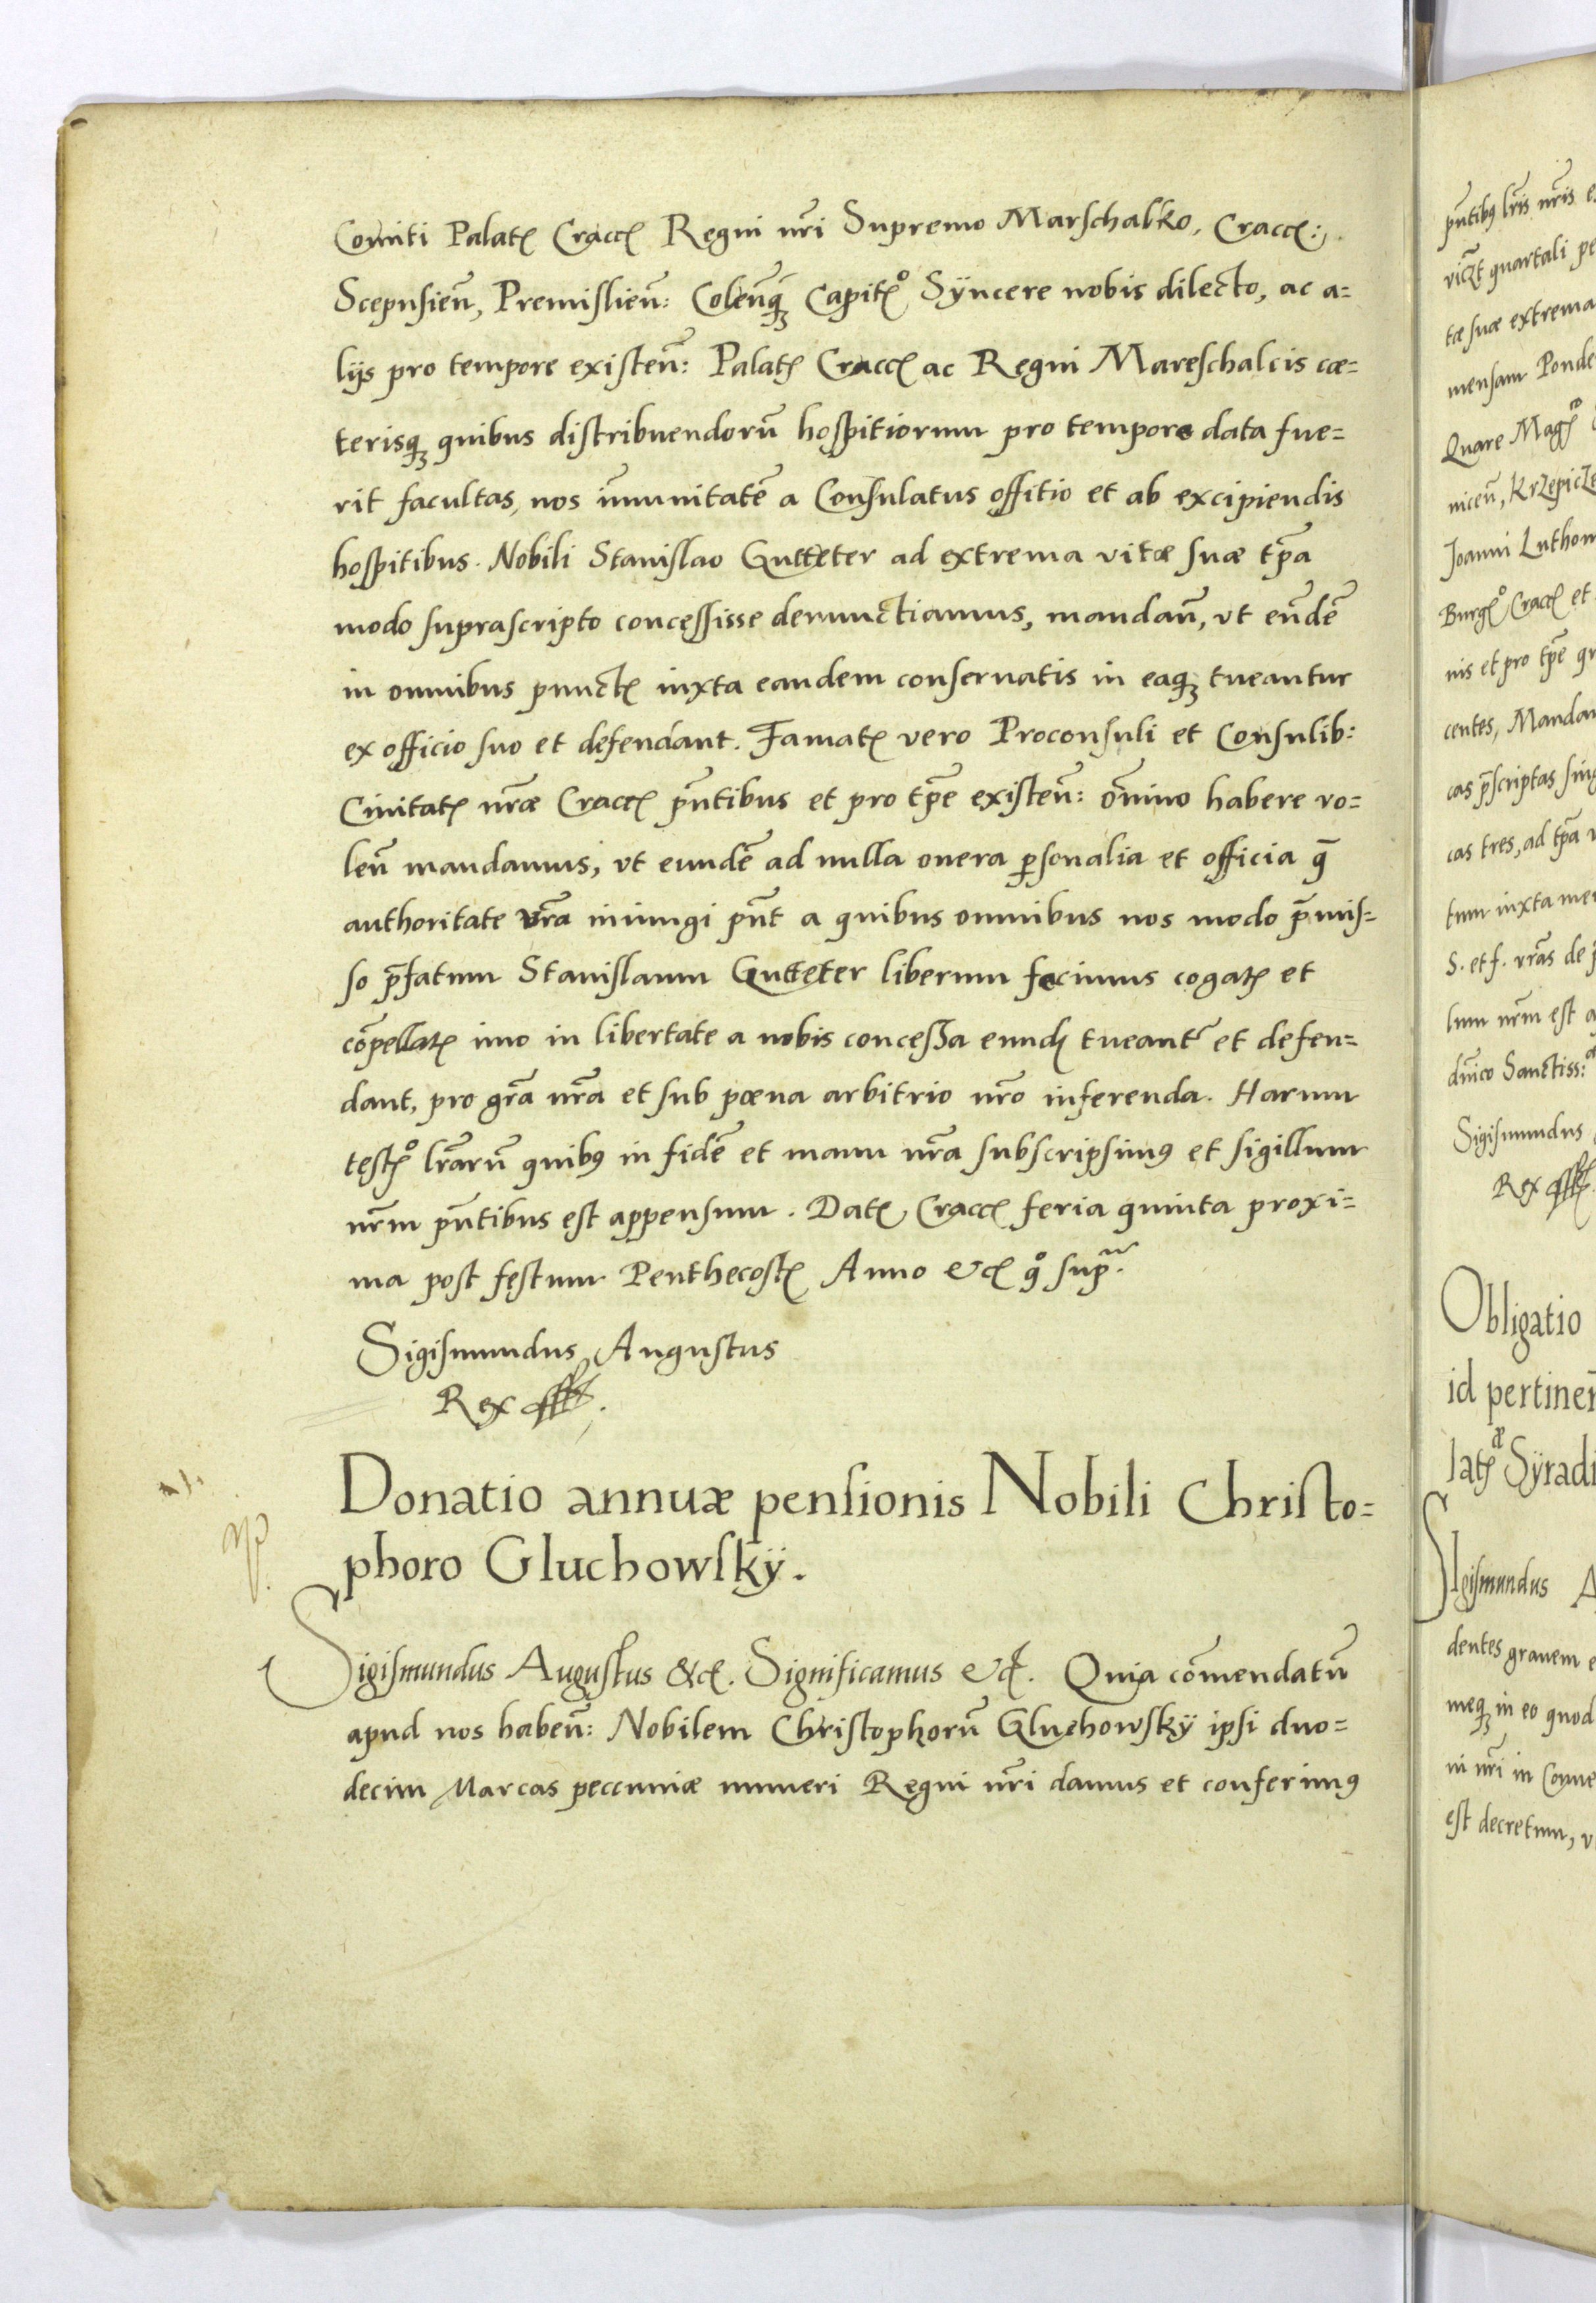 Comiti Palatꝭ Craccꝭ Regni nr̃i Supremo Marschalko, Craccꝭ:,
Scepusieñ, Premislieñ: Coleñqꝫ Capitꝭº Sÿncere nobis dilecto, ac a=
lijs pro tempore existeñ: Palatꝭ Craccꝭ ac Regni Mareschalcis cæ=
terisqꝫ quibus distribuendorũ hospitiorum pro tempore data fue=
rit facultas, nos im̃unitatẽ a Consulatus offitio et ab excipiendis
hospitibus. Nobili Stanislao Gutteter ad extrema vitæ suæ tp̃a
modo suprascripto concessisse denunctiamus, mandañ, vt euñdẽ
in omnibus punctꝭ iuxta eandem conseruatis in eaqꝫ tueantur
ex officio suo et defendant. Famatꝭ vero Proconsuli et Consulib:
Ciuitatꝭ nr̃æ Craccꝭ pñtibus et pro tp̃e existeñ: om̃ino habere vo=
leñ mandamus, vt eundẽ ad nulla onera ꝑsonalia et officia q̃
authoritate vr̃a iniungi pñt a quibus omnibus nos modo p̃mis=
so p̃fatum Stanislaum Gutteter liberum fecimus cogatꝭ et
cõpellatꝭ imo in libertate a nobis concessa eundꝭ tueantʳ et defen=
dant, pro gr̃a nr̃a et sub pœna arbitrio nr̃o inferenda. Harum
testꝭº lr̃arũ quibꝰ in fidẽ et manu nr̃a subscripsimꝰ et sigillum
nr̃m pñtibus est appensum. Datꝭ Craccꝭ feria quinta proxi=
ma post festum Penthecostꝭ Anno &cꝭ qº supᵃ.
Sigismundus Augustus
Rex
Donatio annuæ pensionis Nobili Christo=
phoro Gluchowskÿ.
Sigismundus Augustus &cꝭ. Significamus &cꝭ. Quia com̃endatũ
apud nos habeñ: Nobilem Christophorũ Gluchowskÿ ipsi duo=
decim Marcas peccuniæ numeri Regni nr̃i damus et conferimꝰ
pñtibꝰ lr̃is nr̃is
quartali
tæ suæ extrema
mensam
Quare Magꝭᶜᵒ
niceñ,
Joanni
Burgꝭº Craccꝭ et
nis et pro tp̃e
centes,
cas p̃scriptas
cas tres, ad tp̃a
tum iuxta
S. et f. vr̃as de
lum nr̃m est
dñico Sanctiss:
Sigismundus
Rex
Obligatio
id
latꝭæ
Sigismundus
dentes grauem
meqꝫ in eo quod
ni nr̃i in
est decretum,